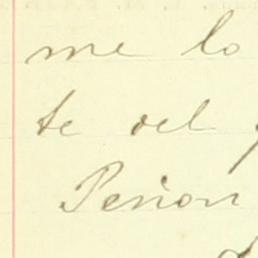 me lo
te del
Peñon